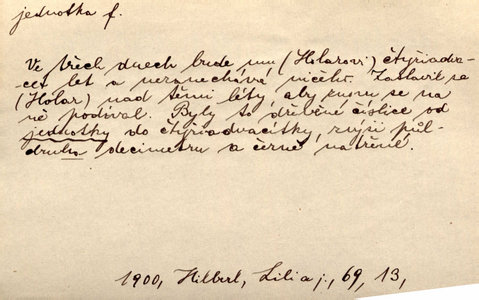 jednotka f.
Ve třech dnech bude mu (Holarovi) čtyřiadva-
cet let a nezanechává ničeho. Zastavil se
(Holar) nad těmi léty, aby znovu se na
ně podíval. Byly to dřevěné číslice od
jednotky do čtyřiadvacítky, zvýší půl-
druha decimetru a černě natřené.
1900, Hilbert, Lilia j., 69, 13,